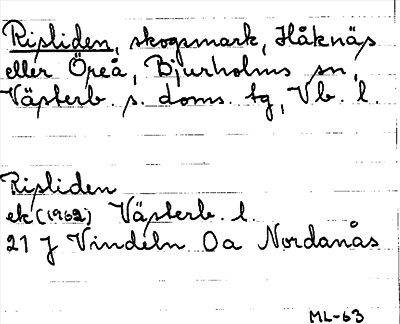 Ripliden, skogsmark, Håknäs
eller Öreå, Bjurholms sn,
Västerb. s. doms. tg, Vb. l.
Ripliden
ek (1962) Västerb. l.
21 J Vindeln 0a Nordanås
ML-63